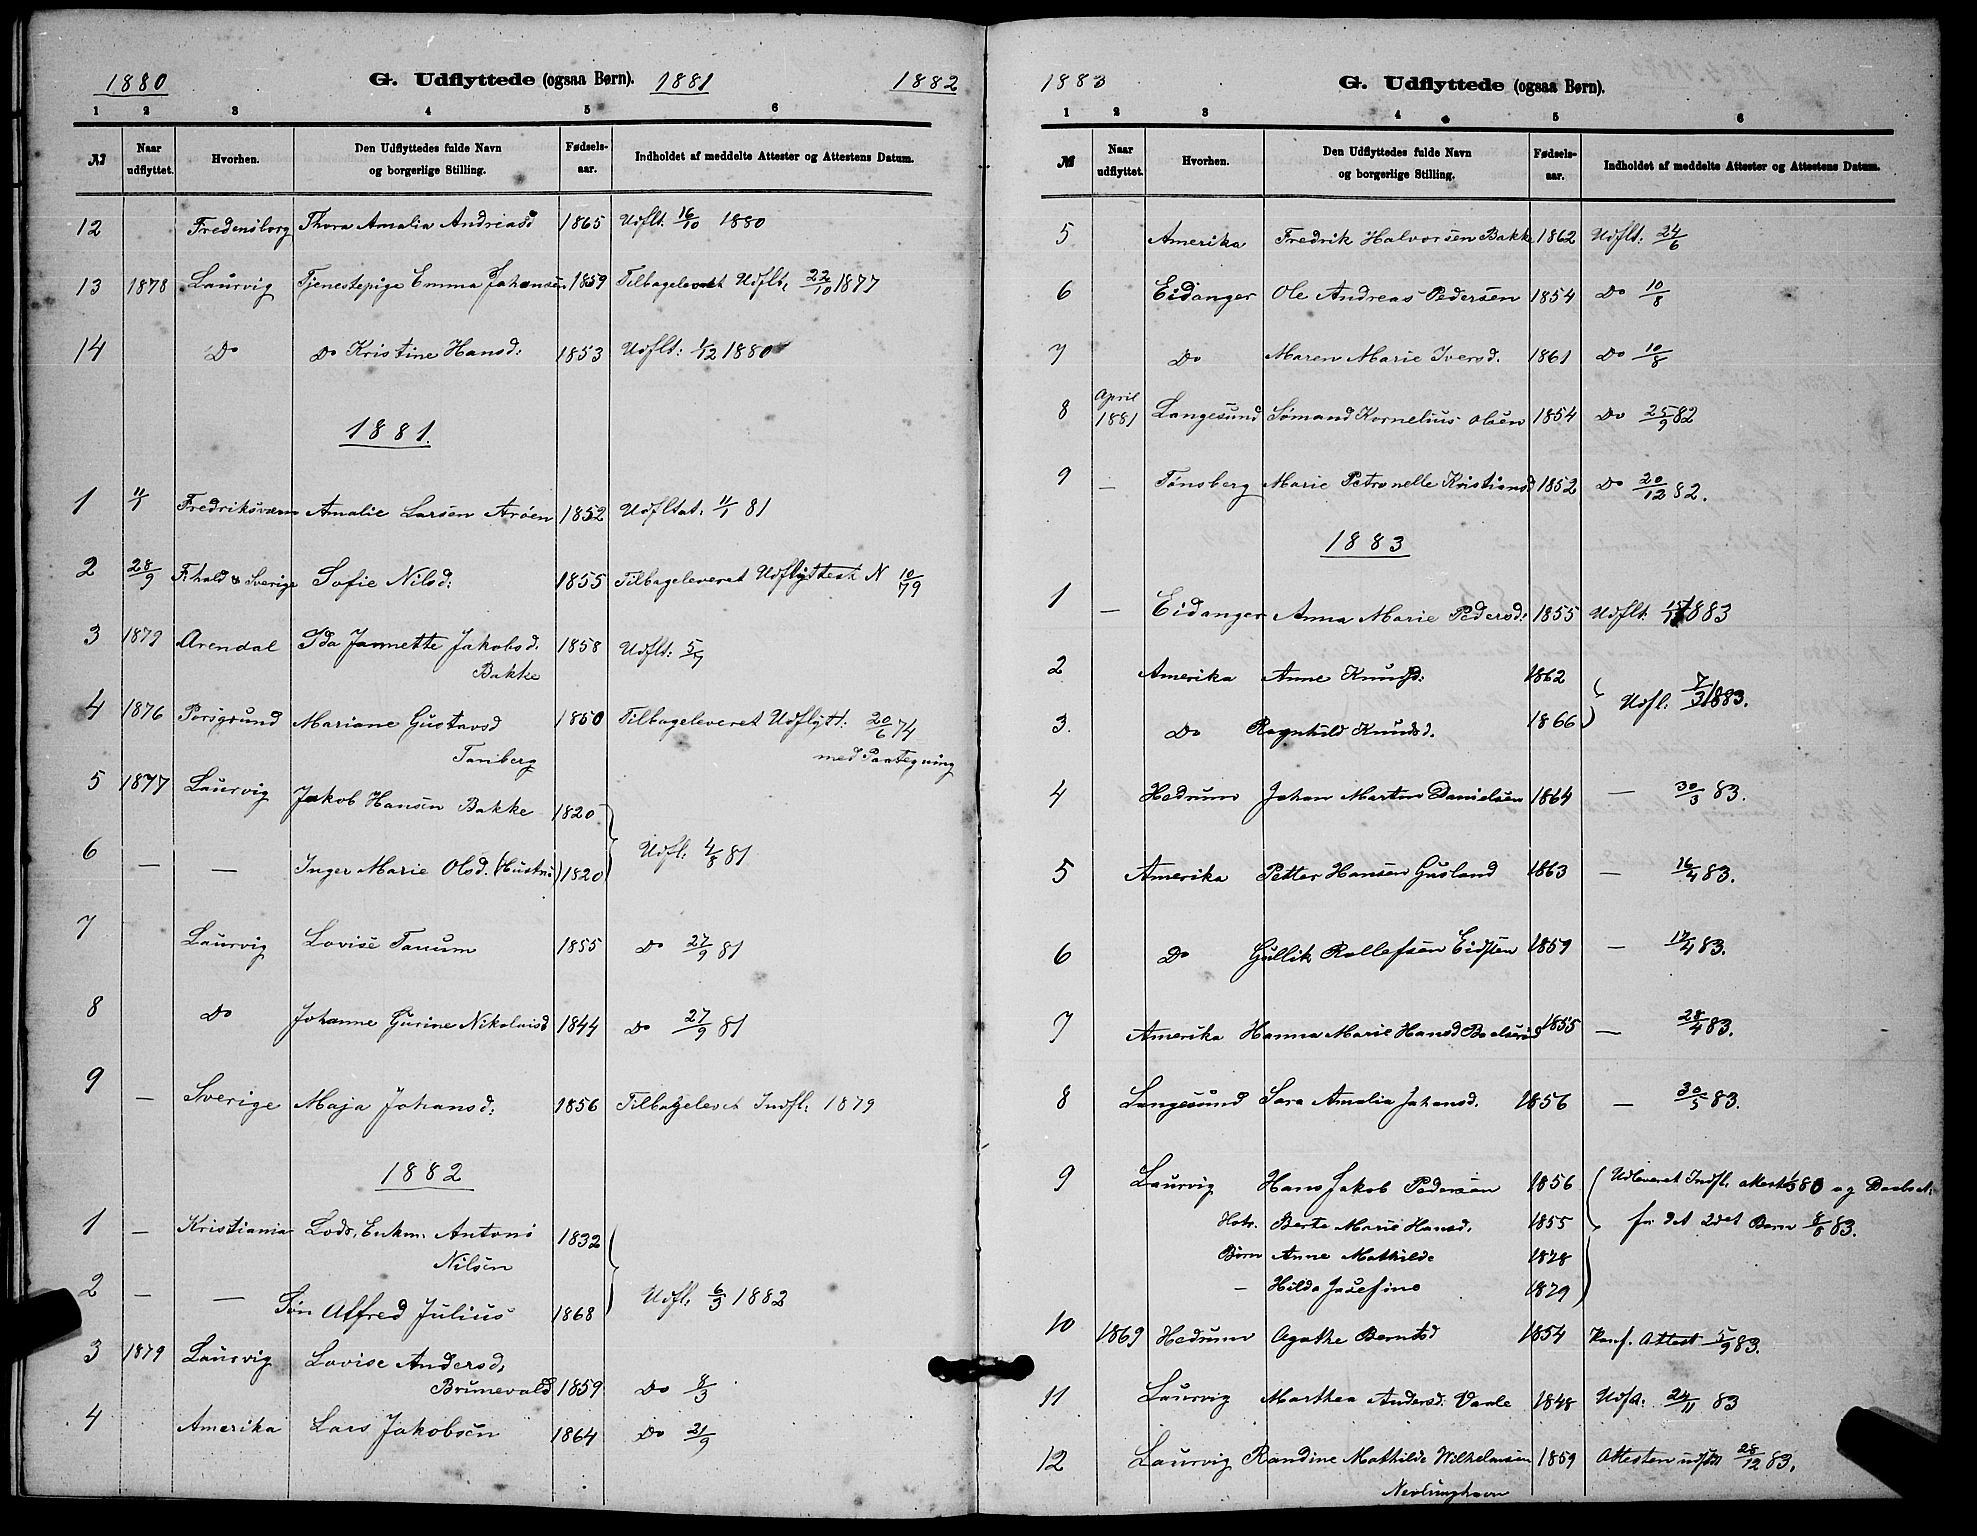 1880 G. Udflyttede (ogsaa Børn). 1881 1882
1 2 3 4 5 6
№ Naar udflyttet. Hvorhen. Den Udflyttedes fulde Navn og borgerlige Stilling. Fødsels-aar. Indholdet af meddelte Attester og Attestens Datum.
12 Fredensborg Thora Amalia Andreasd 1865 Udflt. 16/10 1880
13 1878 Laurvig Tjenestepige Emma Johansen 1859 Tilbageleveret Udflt. 22/10 1877
14 Do Do Kristine Hansd: 1853 Udflt: 1/12 1880
1881.
1 11/1 Fredriksværn Amalie Larsen Arøen 1852 Udfltat: 11/1 81
2 28/9 Frhald & Sverige Sofie Nilsd: 1855 Tilbageleveret Udflyttest N 10/79
3 1879 Arendal Ida Jannette Jakobsd. 1858 Udflt: 5/7
Bakke
4 1876 Porsgrund Mariane Gustavsd 1850 Tilbageleveret Udflytt: 20/6 74
Tanberg med Paategning
5 1877 Laurvig Jakob Hansen Bakke 1820
Udfl: 4/8 81
6 — — Inger Marie Olsd. (Hustru) 1820
7 Laurvig Lovise Tanum 1855 Do 27/9 81
8 Do Johanne Gurine Nikolaisd 1844 Do 27/9 81
9 — Sverige Maja Johansd: 1856 Tilbagelevet Indfl: 1879
1882
1 — Kristiania Lods, Enkm. Antoni 1832
Nilsen
Udfl. 6/3 1882
2 — — Søn Alfred Julius 1868
3 1879 Laurvig Lovise Andersd,
Brunevald 1859 Do 8/3
4 Amerika Lars Jakobsen 1864 Do 21/9
1883 G. Udflyttede (ogsaa Børn).
1 2 3 4 5 6
№ Naar udflyttet. Hvorhen. Den Udflyttedes fulde Navn og borgerlige Stilling. Fødsels-aar. Indholdet af meddelte Attester og Attestens Datum.
5 Amerika Fredrik Halvorsen Bakke 1862 Udflt: 24/6
6 Eidanger Ole Andreas Pedersen 1854 Do 10/8
7 Do Maren Marie Iversd. 1861 Do 10/8
8 April 1881 Langesund Sømand Kornelius Olsen 1854 Do 25/9 82
9 — Tønsberg Marie Petronelle Kristiansd 1852 Do 20/12 82.
1883
1 — Eidanger Anna Marie Pedersd: 1855 Udflt: 1883
2 Amerika Anne Knudsd: 1862
Udfl: 7/3 1883.
3. Do Ragnhild Knudsd. 1866
4 Hedrum Johan Martin Danielsen 1864 — 30/3 83.
5 Amerika Petter Hansen Gusland 1863 — 16/4 83.
6 Do Gullik Rollefsen Eidsten 1859 — 17/4 83.
7 Amerika Hanna Marie Hansd 1855 — 28/4 83.
8 Langesund Sara Amalia Johansd. 1856 — 30/5 83.
9 Laurvig Hans Jakob Pedersen 1856 Udleveret Indfl. og Daabsat:
Hstr. Berte Marie Hansd, 1855 for det 2det Barn 8/8 83.
Børn Anne Mathilde 1878
— Hilda Josefine 1879
10 1869 Hedrum Agathe Berntsd 1854 Konf. Attest 5/9 83.
11 Laurvig Marthea Andersd: Vaale 1848 Udfl: 24/11 83
12 Laurvig Randine Mathilde Wilhelmsen 1859 Attesten udst 28/12 83.
Nevlunghavn